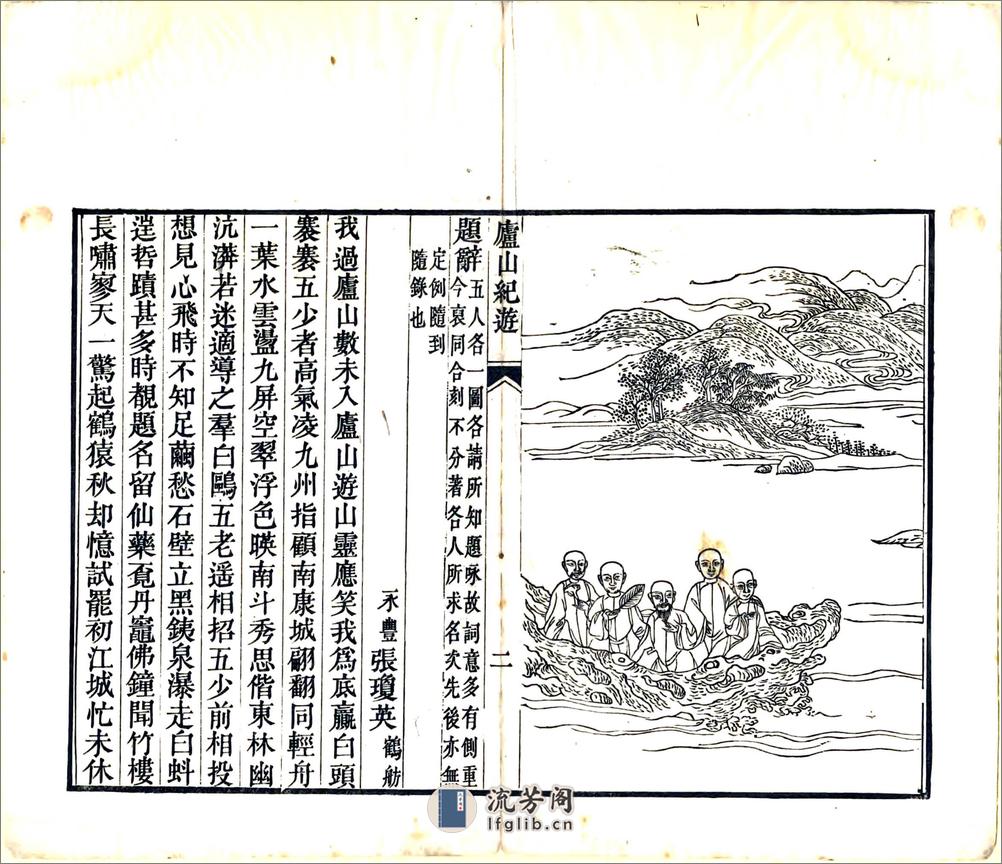 廬山紀遊
二
題辭
五人各一圖各請所知題咏故詞意多有側重
今裒同合刻不分著各人所求名次先後亦無
定例隨到
隨錄也
永豐張瓊英鶴舫
我過廬山數未入廬山遊山靈應笑我爲底贏白頭
褰褰五少者高氣凌九州指顧南康城翩翻同輕舟
一葉水雲盪九屏空翠浮色暎南斗秀思偕東林幽
沆漭若迷適導之羣白鷗五老遥相招五少前相投
想見心飛時不知足繭愁石壁立黑銕泉瀑走白虯
逴哲蹟甚多時覩題名留仙藥覔丹竈佛鐘聞竹樓
長嘯寥天一驚起鶴猿秋却憶試罷初江城忙未休
流芳阁
lfglib.cn